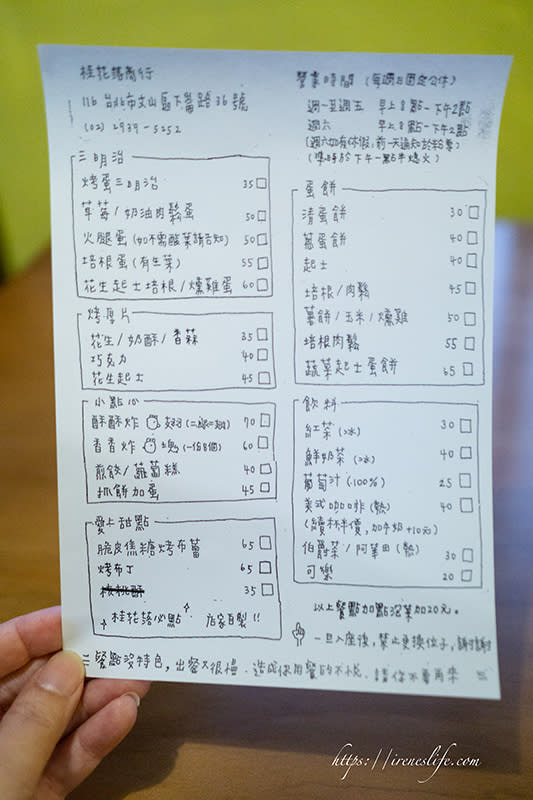 桂花蒔商行
116 台北市文山區下崙路36號
(02) 2939-5252
營業時間 (每週日固定公休)
週一至週五 早上8點-下午2點
週六 早上8點-下午2點
(週六如有休假,前一天通知於粉專)
(準時於下午一點半熄火)
三明治
烤蛋三明治 35
草莓/奶油肉鬆蛋 50
火腿蛋 (如不需酸菜請告知) 50
培根蛋 (有生菜) 55
花生起士培根/燻雞蛋 60
烤厚片
花生/奶酥/香蒜 35
巧克力 40
花生起士 45
小點心
酥酥炸 70
香香炸 塊 (一份8個) 60
煎餃/蘿蔔糕 40
抓餅加蛋 45
愛上甜點
脆皮焦糖烤布蕾 65
烤布丁 65
核桃酥 35
桂花蒔必點 店家自製!!
蛋餅
清蛋餅 30
蔥蛋餅 40
起士 40
培根/肉鬆 45
薯餅/玉米/燻雞 50
培根肉鬆 55
蔬菜起士蛋餅 65
飲料
紅茶 (冰) 30
鮮奶茶 (冰) 40
葡萄汁 (100%) 25
美式咖啡 (熱) 40
(續杯半價,加牛奶+10元)
伯爵茶/阿華田 (熱) 30
可樂 20
以上餐點加點泡菜加20元。
一旦入座後,禁止更換位子,謝謝
餐點沒特色,出餐又很慢.造成你用餐的不悅.請你不要再來
https://ireneslife.com